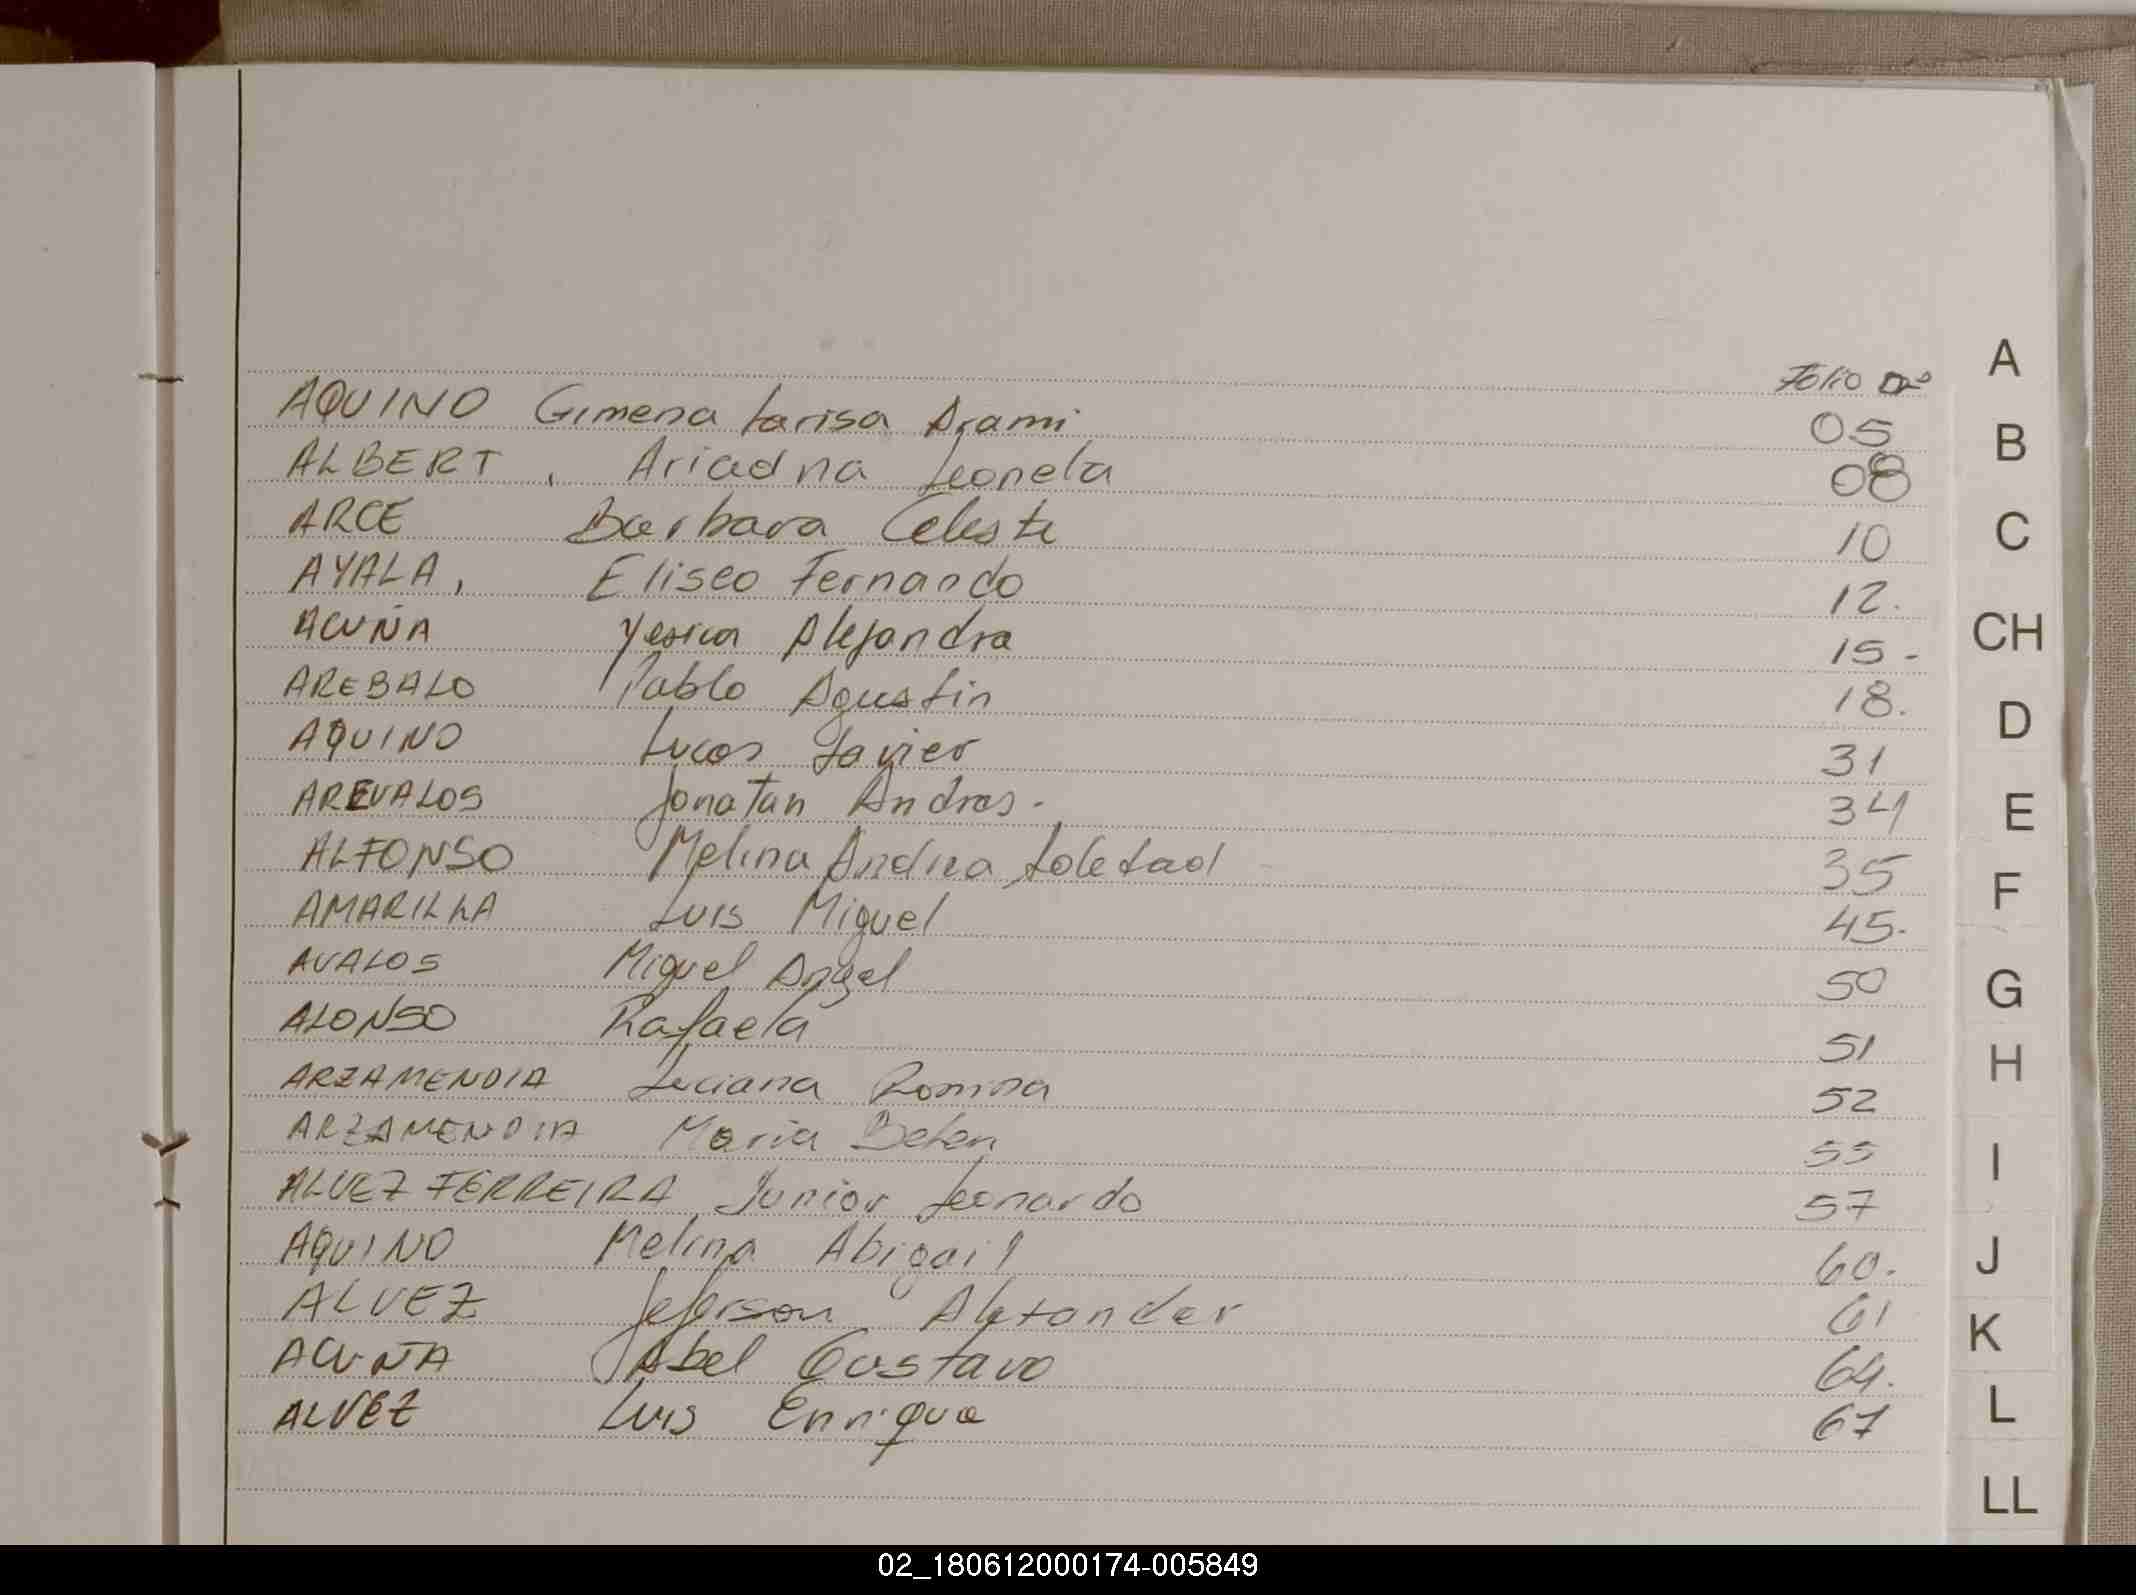 Folio nº
AQUINO Gimena Larisa Arami 05
ALBERT, Ariadna Leonela 08
ARCE Barbara Celeste 10
AYALA, Eliseo Fernando 12.
ACUÑA Yesica Alejandra 15-
AREBALO Pablo Agustin 18.
AQUINO Lucas Javier 31
AREVALOS Jonatan Andres. 34
ALFONSO Melina Andrea Soledad 35
AMARILLA Luis Miguel 45.
AVALOS Miguel Angel 50
ALONSO Rafaela 51
ARZAMENDIA Luciana Romina 52
ARZAMENDIA Maria Belen 55
ALVEZ FERREIRA Junior Leonardo 57
AQUINO Melina Abigail 60.
ALVEZ Jeferson Alexander 61
ACUÑA Abel Gustavo 64.
ALVEZ Luis Enrique 67
A
B
C
CH
D
E
F
G
H
I
J
K
L
LL
02_180612000174-005849